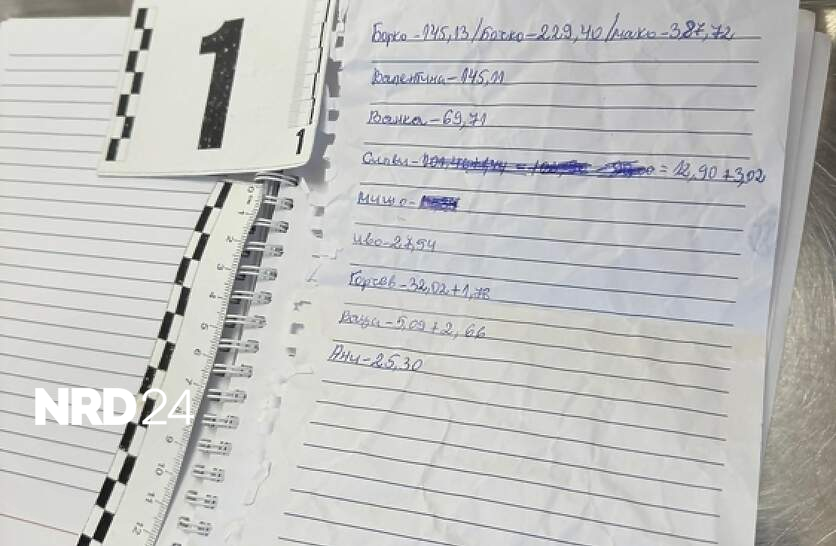 1
1
Борко-145,13/Бочко-229,40/мако-387,72
Валентина-145,11
Ванка-69,71
Слави- = 12,90+3,02
Мишо-
Иво-27,94
Горсев-32,02+1,78
Ваци-5,09+2,66
Ани-25,30
0
1
2
3
4
5
6
7
9
10
11
12
NRD24